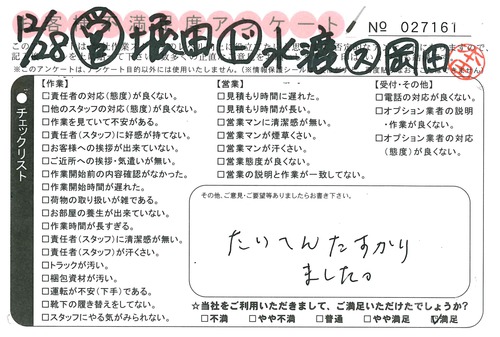 お客様不満足度アンケート
No 027161
12/28 営 堀田 ジ 水澄 ス 岡田
※このアンケートは、アンケート目的以外には使用いたしません。
チェックリスト
【作業】
□責任者の対応(態度)が良くない。
□他のスタッフの対応(態度)が良くない。
□作業を見ていて不安がある。
□責任者(スタッフ)に好感が持てない。
□お客様への挨拶が出来ていない。
□ご近所への挨拶・気遣いが無い。
□作業開始前の内容確認がなかった。
□作業開始時間が遅れた。
□荷物の取り扱いが雑である。
□お部屋の養生が出来ていない。
□作業時間が長すぎる。
□責任者(スタッフ)に清潔感が無い。
□責任者(スタッフ)が汗くさい。
□トラックが汚い。
□梱包資材が汚い。
□運転が不安(下手)である。
□靴下の履き替えをしてない。
□スタッフにやる気がみられない。
【営業】
□見積もり時間に遅れた。
□見積もり時間が長い。
□営業マンに清潔感が無い。
□営業マンが煙草くさい。
□営業マンが汗くさい。
□営業態度が良くない。
□営業の説明と作業が一致してない。
【受付・その他】
□電話の対応が良くない。
□オプション業者の説明
・作業が良くない。
□オプション業者の対応
(態度)が良くない。
その他、ご意見・ご要望等ありましたらお書き下さい。
たいへんたすかり
ました。
☆当社をご利用いただきまして、ご満足いただけたでしょうか?
□不満 □やや不満 □普通 □やや満足 ☑満足